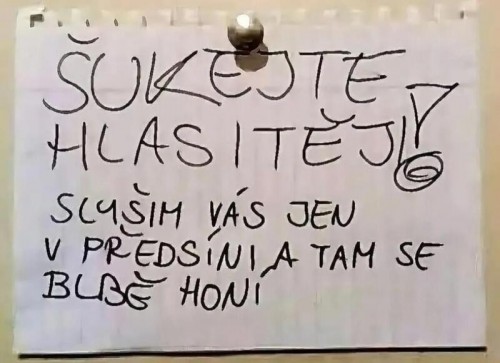 ŠUKEJTE
HLASITĚJI!
SLYŠIM VÁS JEN
V PŘEDSÍNI A TAM SE
BLBĚ HONÍ